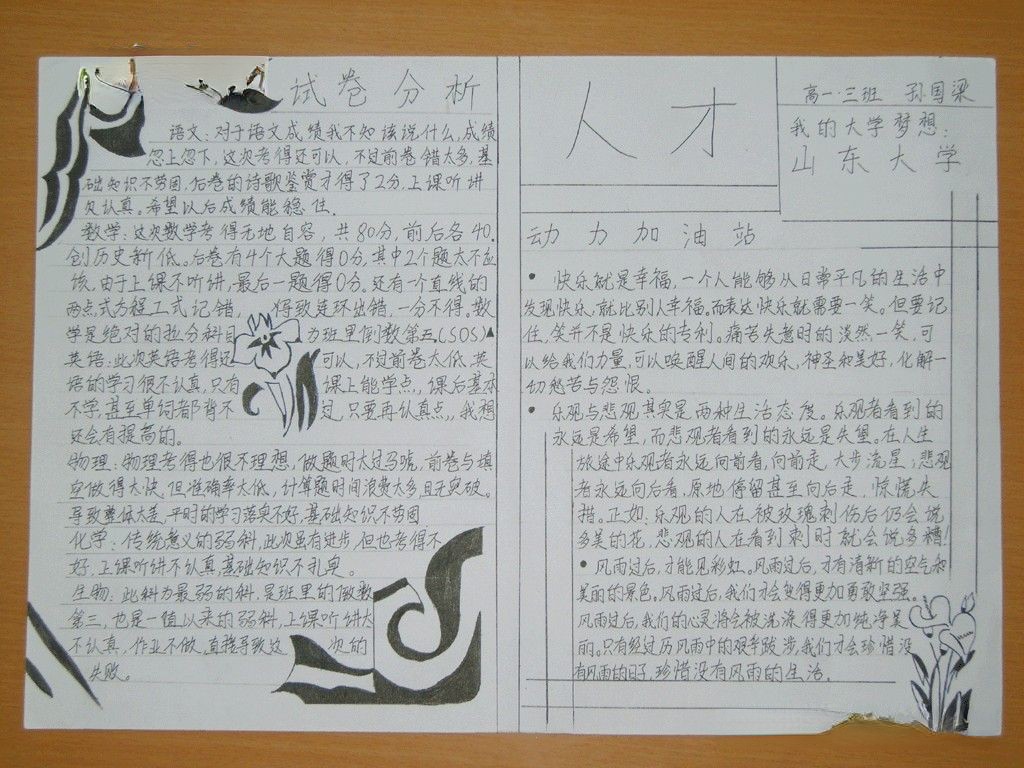 试卷分析
语文：对于语文成绩我不知该说什么，成绩
忽上忽下，这次考得还可以，不过前卷错太多，基
础知识不劳固，后卷的诗歌鉴赏才得了2分，上课听讲
欠认真。希望以后成绩能稳住。
数学：这次数学考得无地自容，共80分，前后各40，
创历史新低。后卷有4个大题得0分，其中2个题太不应
该，由于上课不听讲，最后一题得0分。还有一个直线的
两点式方程工式记错，得致连环出错，一分不得，数
学是绝对的拉分科目力班里倒数第五(SOS)▲
英语：此次英语考得还可以，不过前卷太低，英
语的学习很不认真，只有课上能学点，课后基本
不学，甚至单词都背不过，只要再认真点，我想
还会有提高的。
物理：物理考得也很不理想，做题时太过马唬，前卷与填
空做得太快，但准确率太低，计算题时间浪费太多且无突破。
导致整体太差，平时的学习落实不好，基础知识不劳固
化学：传统意义的弱科，此次虽有进步，但也考得不
好，上课听讲不认真，基础知识不扎实。
生物：此科为最弱的科，是班里的倒数
第三，也是一值以来的弱科，上课听讲太
不认真，作业不做，直接导致这次的
失败。
人才
高一·三班 孙国梁
我的大学梦想：
山东大学
动力加油站
• 快乐就是幸福，一个人能够从日常平凡的生活中
发现快乐，就比别人幸福。而表达快乐就需要一笑。但要记
住，笑并不是快乐的专利。痛苦失意时的淡然一笑，可
以给我们力量，可以唤醒人间的欢乐，神圣和美好，化解一
切愁苦与怨恨。
• 乐观与悲观其实是两种生活态度。乐观者看到的
永远是希望，而悲观者看到的永远是失望。在人生
旅途中乐观者永远向前看，向前走，大步流星；悲观
者永远向后看，原地停留甚至向后走，惊慌失
措。正如：乐观的人在被玫瑰刺伤后仍会说
多美的花，悲观的人在看到刺时就会说多糟！
• 风雨过后，才能见彩虹。风雨过后，才有清新的空气和
美丽的景色。风雨过后，我们才会变得更加勇敢坚强。
风雨过后，我们的心灵将会被洗涤得更加纯净美
丽。只有经过历风雨中的艰辛跋涉，我们才会珍惜没
有风雨的日子，珍惜没有风雨的生活。